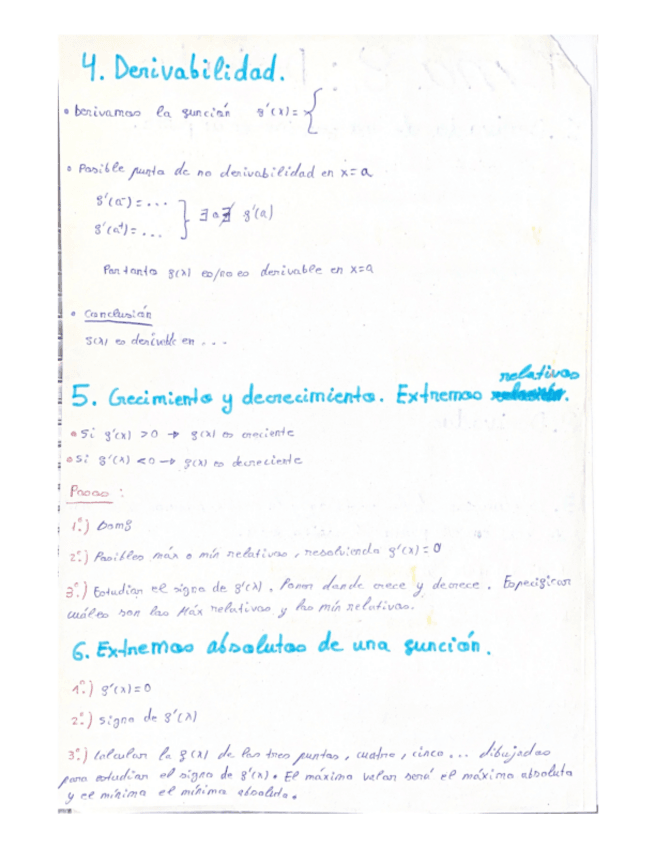 4. Derivabilidad.
• Derivamos la función f'(x)= {
• Posible punto de no derivabilidad en x=a
f'(a⁻)= ...
f'(a⁺)= ... } ∃ o ∄ f'(a)
Por tanto f(x) es/no es derivable en x=a
• Conclusión
f(x) es derivable en ...
5. Crecimiento y decrecimiento. Extremos relativos.
• Si f'(x) > 0 → f(x) es creciente
• Si f'(x) < 0 → f(x) es decreciente
Pasos:
1º.) Domf
2º.) Posibles máx o mín relativos, resolviendo f'(x)=0
3º.) Estudiar el signo de f'(x), Poner donde crece y decrece. Especificar
cuáles son los Máx relativos y los mín relativos.
6. Extremos absolutos de una función.
1º.) f'(x)=0
2º.) signo de f'(x)
3º.) Calcular la f(x) de los tres puntos, cuatro, cinco... dibujados
para estudiar el signo de f'(x). El máximo valor será el máximo absoluto
y el mínimo el mínimo absoluto.